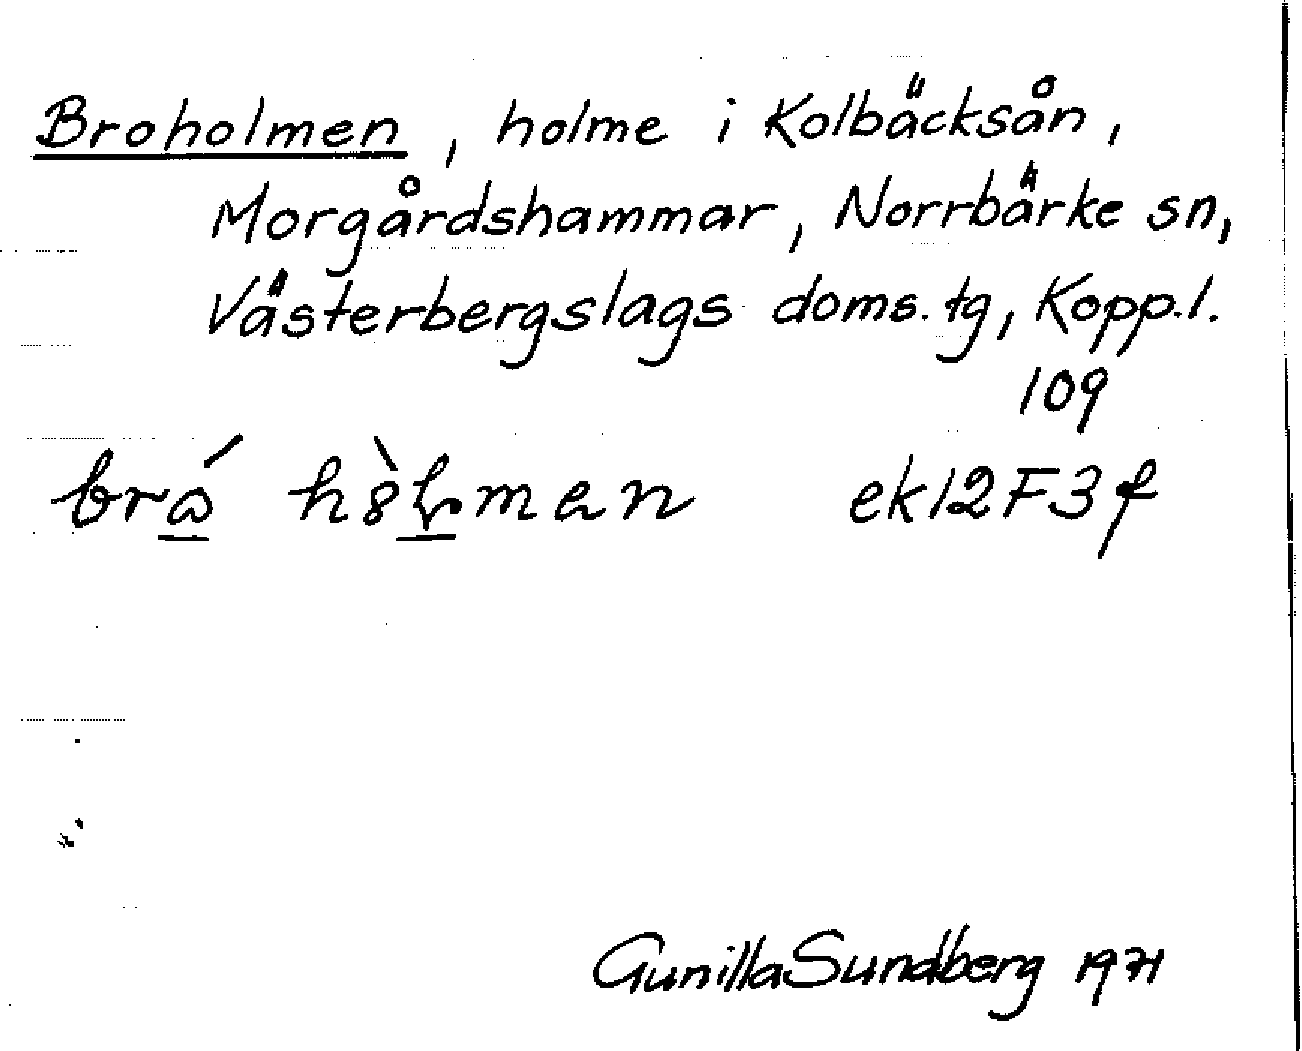 Broholmen, holme i Kolbäcksån,
Morgårdshammar, Norrbärke sn,
Västerbergslags doms.tg, Kopp.l.
109
ek12F3f
Gunilla Sundberg 1971